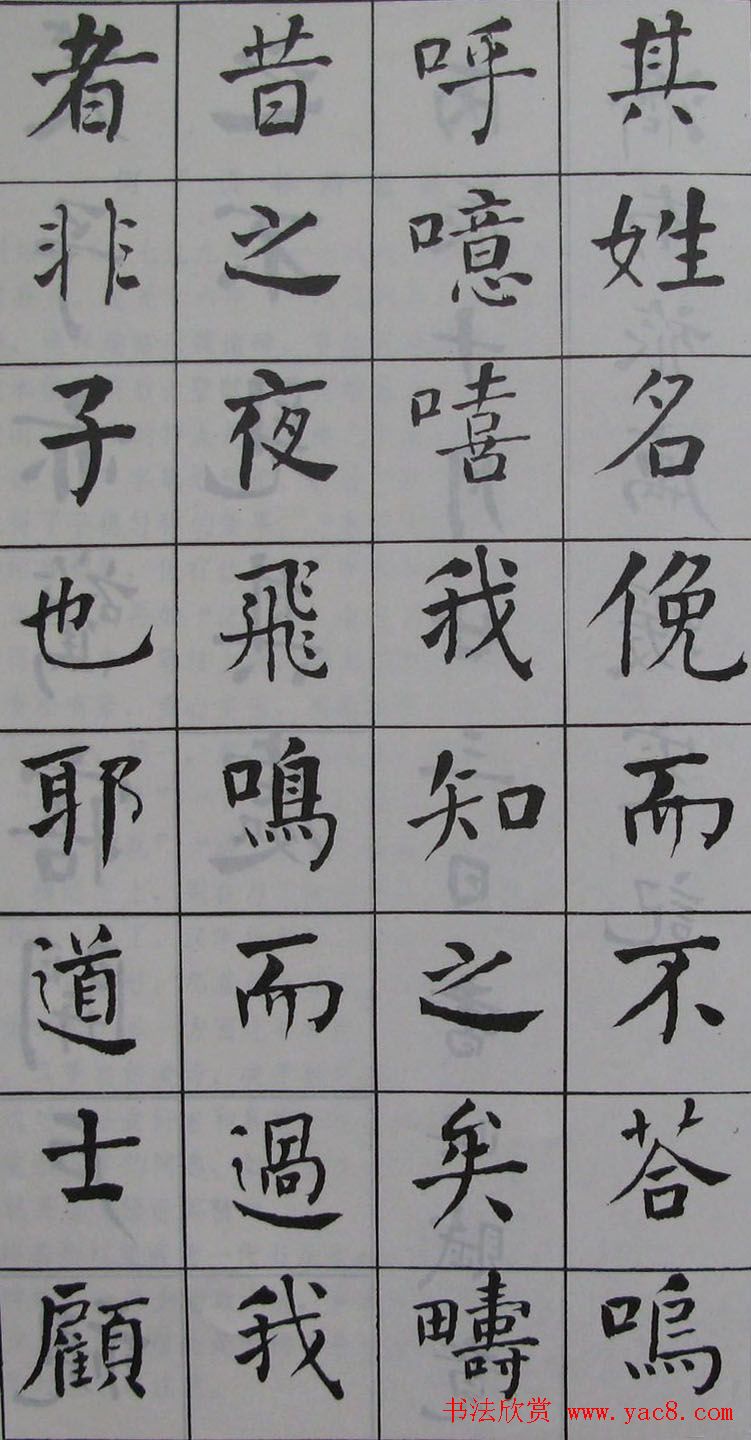 其姓名俛而不荅嗚
呼噫嘻我知之矣疇
昔之夜飛鳴而過我
者非子也耶道士顧
书法欣赏 www.yac8.com